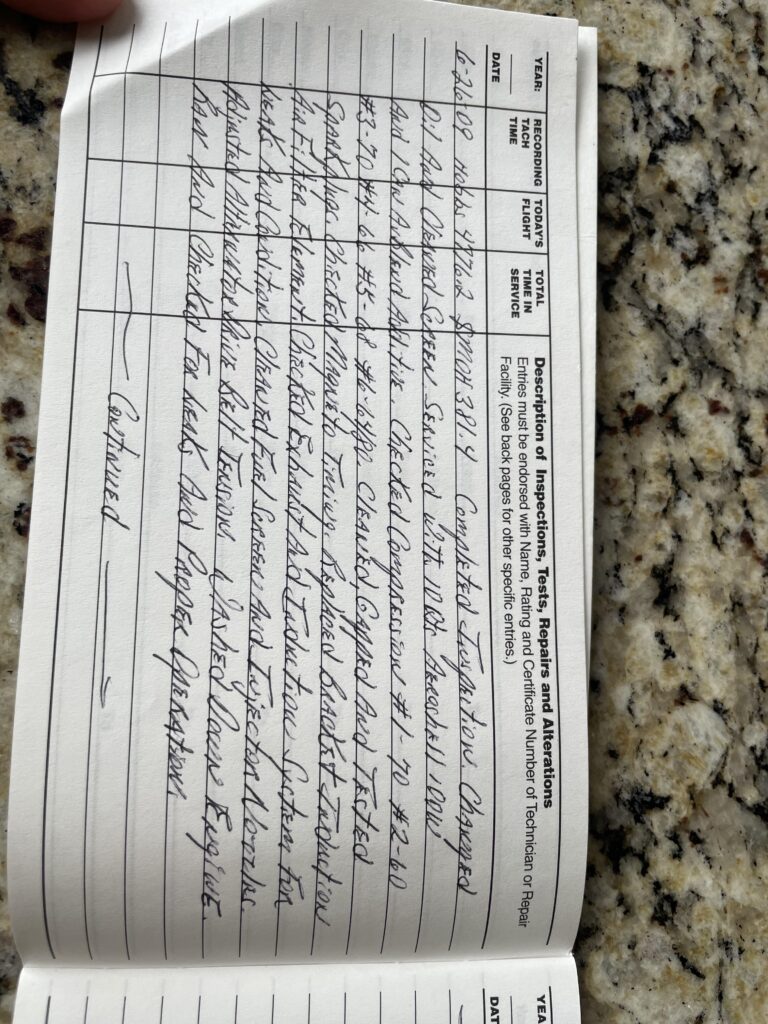 YEAR:
DATE
RECORDING
TACH
TIME
TODAY'S
FLIGHT
TOTAL
TIME IN
SERVICE
Description of Inspections, Tests, Repairs and Alterations
Entries must be endorsed with Name, Rating and Certificate Number of Technician or Repair
Facility. (See back pages for other specific entries.)
6-26-09 Hobbs 4776.2 SMOH 381.4 Completed Inspection. Changed
Oil And Cleaned Screen. Serviced with 10 Qts AeroShell 100W
And 1 Can Avblend Additive. Checked Compression #1-70 #2-60
#3-70 #4-66 #5-68 #6-64/80. Cleaned Gapped And Tested
Spark Plugs. Checked Magneto Timing. Replaced Bracket Induction
Air Filter Element. Checked Exhaust And Induction System For
Leaks And Condition. Cleaned Fuel Screen And Injector Nozzles.
Adjusted Alternator Drive Belt Tension. Washed Down Engine.
Ran And Checked For Leaks And Proper Operation
Continued
YEA
DAT